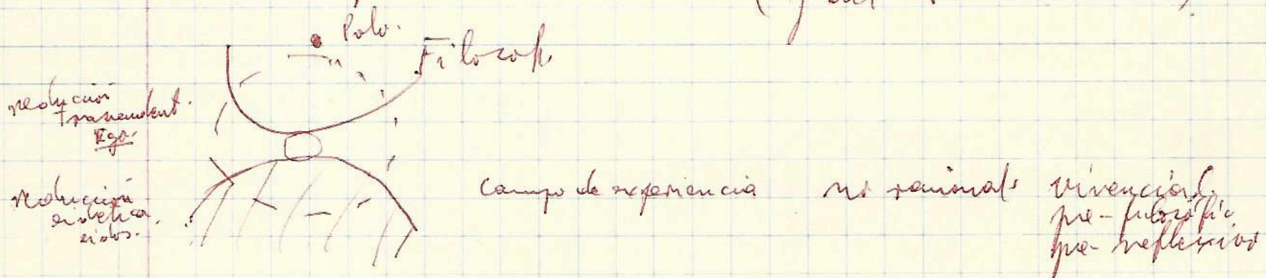 Polo.
Filosof.
reducción
trascendent.
Ego.
reducción
eidética.
eidos.
Campo de experiencia no racional. vivencial.
pre-filosófic
pre-reflexivo